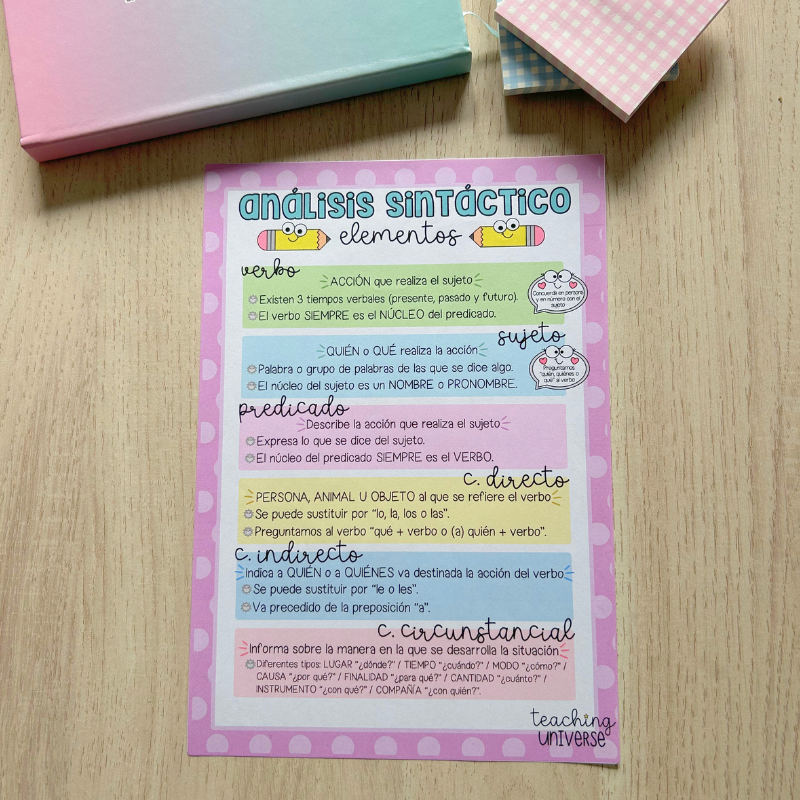 análisis sintáctico
elementos
verbo
ACCIÓN que realiza el sujeto
Existen 3 tiempos verbales (presente, pasado y futuro).
El verbo SIEMPRE es el NÚCLEO del predicado.
Concuerda en persona
y en número con el
sujeto
sujeto
QUIÉN o QUÉ realiza la acción
Palabra o grupo de palabras de las que se dice algo.
El núcleo del sujeto es un NOMBRE o PRONOMBRE.
Preguntamos
"quién, quiénes o
qué" al verbo
predicado
Describe la acción que realiza el sujeto
Expresa lo que se dice del sujeto.
El núcleo del predicado SIEMPRE es el VERBO.
c. directo
PERSONA, ANIMAL U OBJETO al que se refiere el verbo
Se puede sustituir por "lo, la, los o las".
Preguntamos al verbo "qué + verbo o (a) quién + verbo".
c. indirecto
Indica a QUIÉN o a QUIÉNES va destinada la acción del verbo
Se puede sustituir por "le o les".
Va precedido de la preposición "a".
c. circunstancial
Informa sobre la manera en la que se desarrolla la situación
Diferentes tipos: LUGAR "¿dónde?" / TIEMPO "¿cuándo?" / MODO "¿cómo?" /
CAUSA "¿por qué?" / FINALIDAD "¿para qué?" / CANTIDAD "¿cuánto?" /
INSTRUMENTO "¿con qué?" / COMPAÑÍA "¿con quién?".
teaching
UNIVERSE